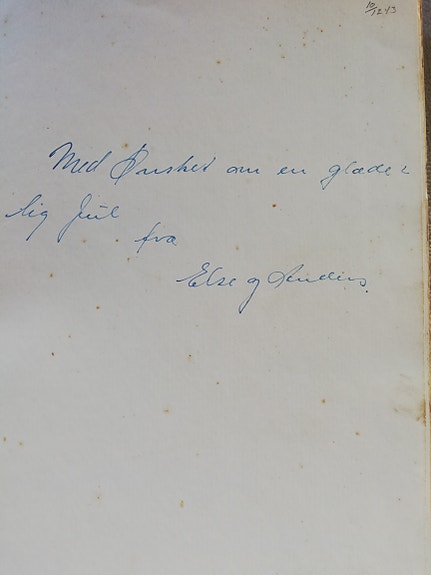 10/12 43
Med Ønsket om en glæde-
lig Jul
fra
Else og Anders.